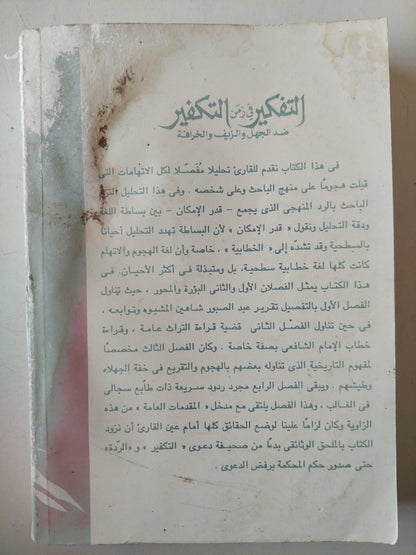 التفكير في زمن التكفير
ضد الجهل والزيف والخرافة
فى هذا الكتاب نقدم للقارئ تحليلا مُفصّلا لكل الاتهامات التى
قيلت هجومًا على منهج الباحث وعلى شخصه . وفى هذا التحليل
الباحث بالرد المنهجى الذى يجمع - قدر الإمكان - بين بساطة اللغة
ودقة التحليل ونقول « قدر الإمكان » لأن البساطة تهدد التحليل أحيانًا
بالسطحية وقد تشدّه إلى « الخطابية » ، خاصة وأن لغة الهجوم والاتهام
كانت كلها لغة خطابية سطحية، بل ومبتذلة فى أكثر الأحيان. فى
هذا الكتاب يمثل الفصلان الأول والثانى البؤرة والمحور ، حيث تناول
الفصل الأول بالتفصيل تقرير عبد الصبور شاهين المشبوه وتوابعه ،
فى حين تناول الفصْل الثانى قضية قراءة التراث عامة ، وقراءة
خطاب الإمام الشافعى بصفة خاصة . وكان الفصل الثالث مخصصًا
لمفهوم التاريخية الذى تناوله بعضهم بالهجوم والتقريع فى خفة الجهلاء
وطيشهم . ويبقى الفصل الرابع مجرد ردود سريعة ذات طابع سجالى
فى الغالب ، وهذا الفصل يلتقى مع مدخل « المقدمات العامة » من هذه
الزاوية وكان لزامًا علينا لوضع الحقائق كلها أمام عين القارئ أن نزود
الكتاب بالملحق الوثائقى بدءًا من صحيفة دعوى « التكفير » و «الردّة»
حتى صدور حكم المحكمة برفض الدعوى .